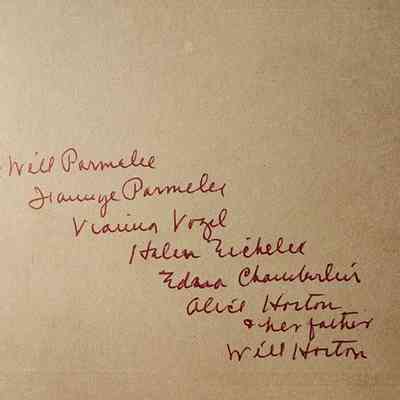 Will Parmelee
Parmelee
Vogel
Helen Eichelee
Edna Chamberlin
Alice Horton
& her father
Will Horton